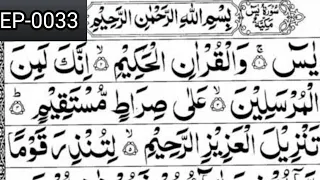 EP-0033
سورة يس مكية
بِسْمِ اللهِ الرَّحْمٰنِ الرَّحِيْمِ
يٰسٓ ۚ وَالْقُرْاٰنِ الْحَكِيْمِ ۙ اِنَّكَ لَمِنَ
الْمُرْسَلِيْنَ ۙ عَلٰى صِرَاطٍ مُّسْتَقِيْمٍ ؕ
تَنْزِيْلَ الْعَزِيْزِ الرَّحِيْمِ ۙ لِتُنْذِرَ قَوْمًا